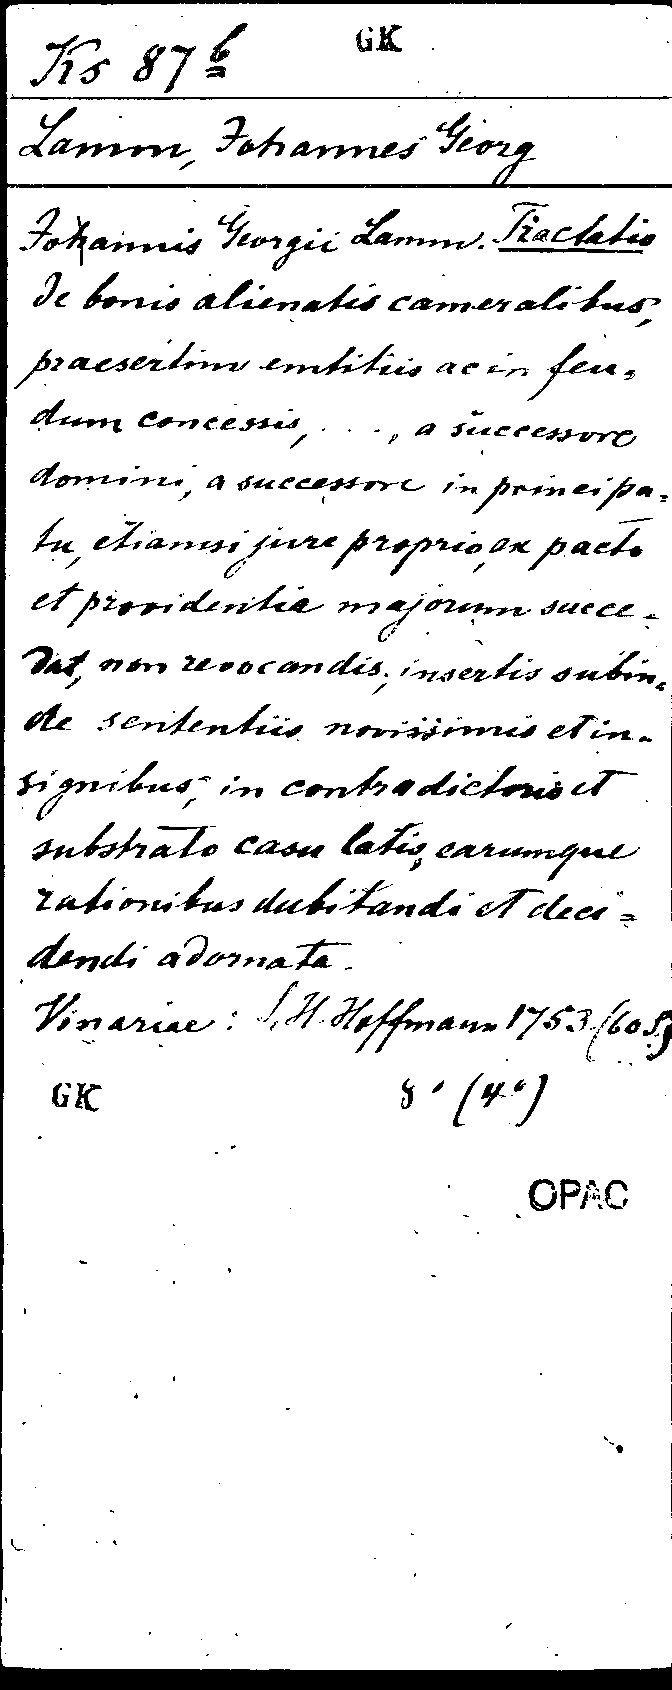 Ks 87 b GK
Lamm, Johannes Georg
Johannis Georgii Lamm. Tractatio
de bonis alienatis cameralibus,
praesertim emtitiis ac in feu=
dum concessis, . . ., a successore
domini, a successore in principa=
tu, etiamsi jure proprio, ex pacto
et providentia majorum succe=
dat, non revocandis, insertis subin=
de sententiis novissimis et in=
signibus, in contradictorio et
substrato casu latis, earumque
rationibus dubitandi et deci=
dendi adornata.
Vinariae: S. H. Hoffmann 1753 (60 S.)
GK 8° (4°)
OPAC